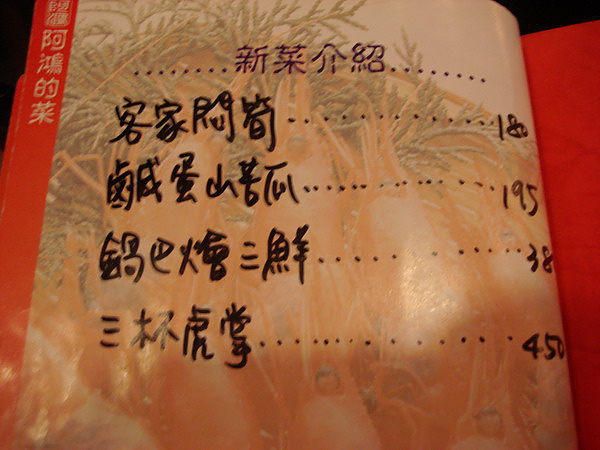 阿鴻的菜
........新菜介紹........
客家悶筍..................180
鹹蛋山苦瓜..................195
鍋巴燴三鮮..................38
三杯虎掌..................450